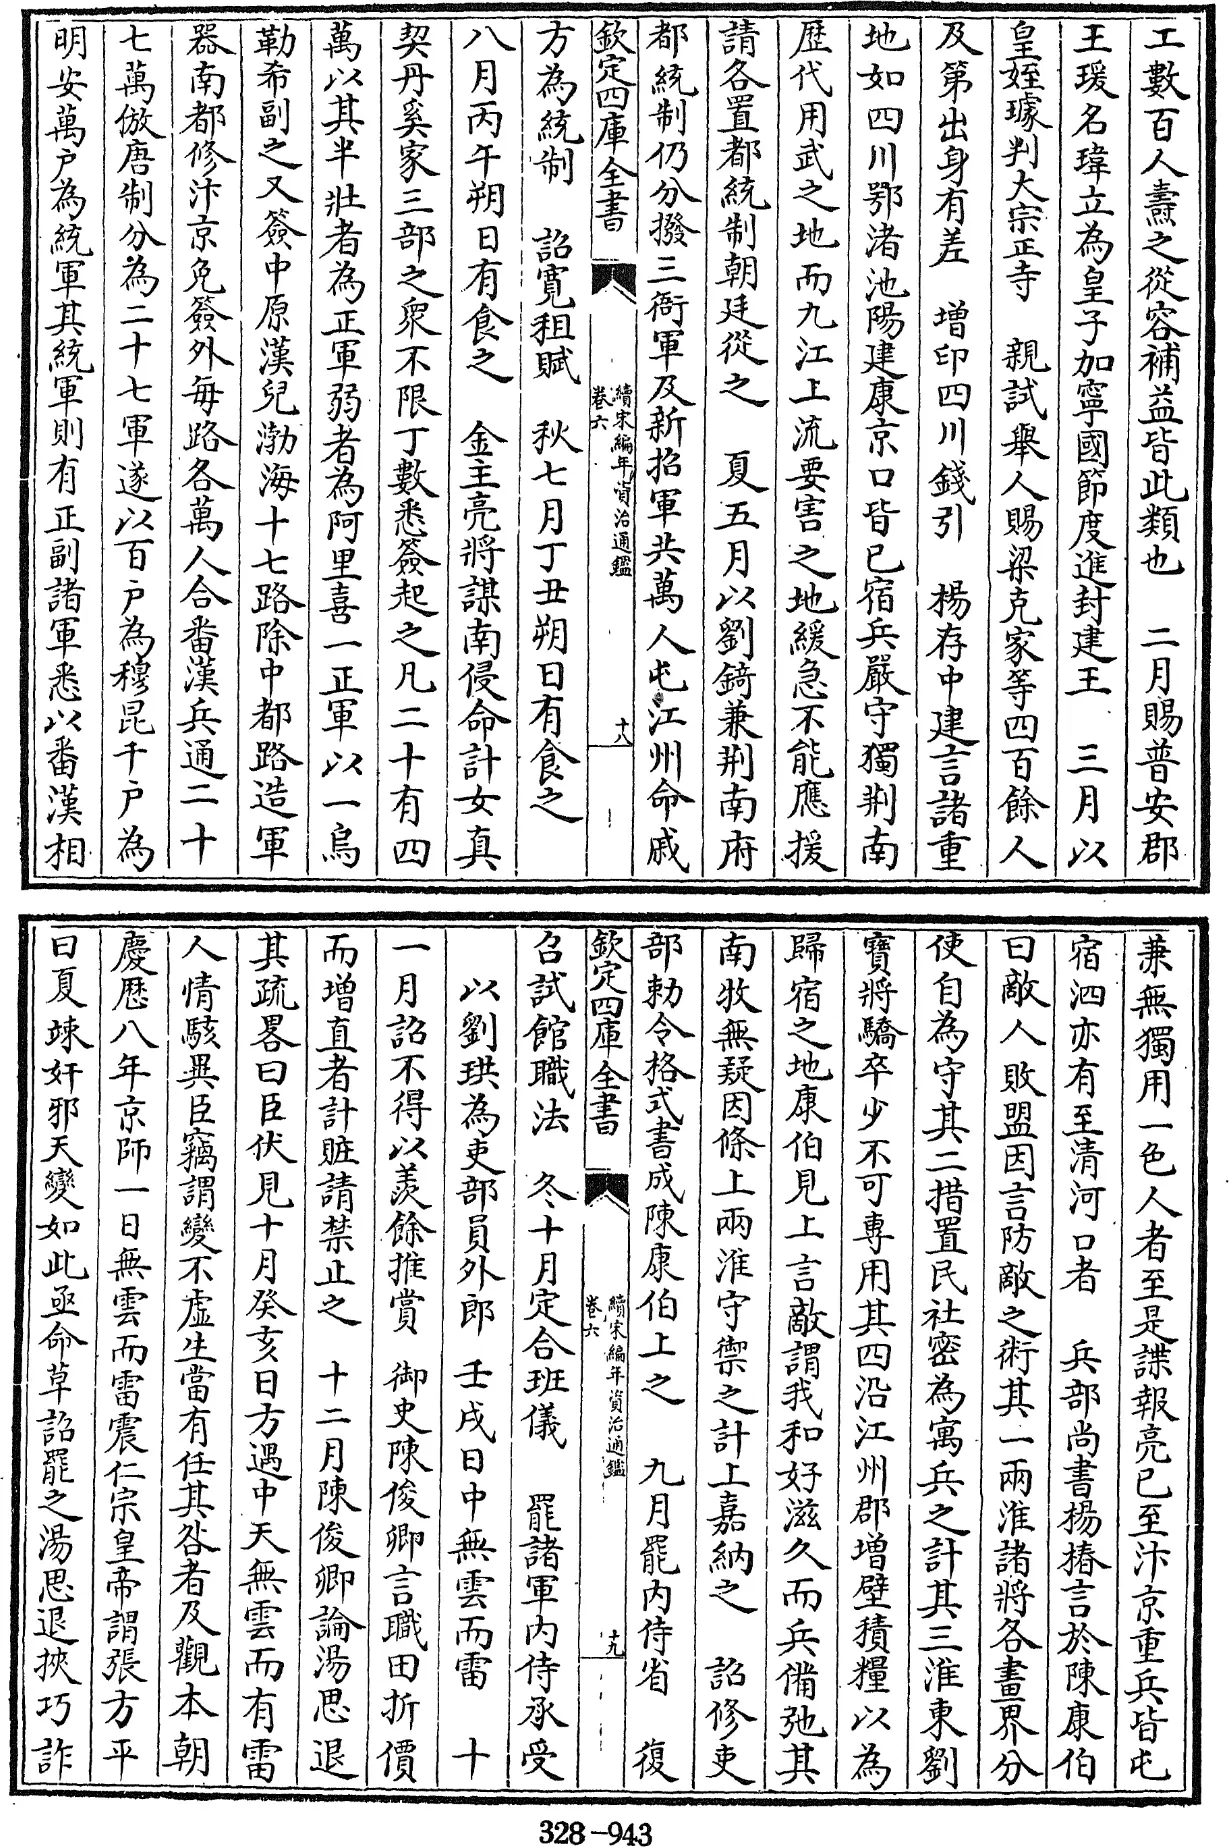 工數百人壽之從容補益皆此類也　二月賜普安郡
王瑗名瑋立為皇子加寧國節度進封建王　三月以
皇姪璩判大宗正寺　親試舉人賜梁克家等四百餘人
及第出身有差　增印四川錢引　楊存中建言諸重
地如四川鄂渚池陽建康京口皆已宿兵嚴守獨荆南
歷代用武之地而九江上流要害之地緩急不能應援
請各置都統制朝廷從之　夏五月以劉錡兼荆南府
都統制仍分撥三衙軍及新招軍共萬人屯江州命戚
欽定四庫全書
續宋編年資治通鑑
卷六
十八
方為統制　詔寛租賦　秋七月丁丑朔日有食之
八月丙午朔日有食之　金主亮將謀南侵命計女真
契丹奚家三部之衆不限丁數悉簽起之凡二十有四
萬以其半壯者為正軍弱者為阿里喜一正軍以一烏
勒希副之又簽中原漢兒渤海十七路除中都路造軍
器南都修汴京免簽外每路各萬人合番漢兵通二十
七萬倣唐制分為二十七軍遂以百户為穆昆千户為
明安萬户為統軍其統軍則有正副諸軍悉以番漢相
兼無獨用一色人者至是諜報亮已至汴京重兵皆屯
宿泗亦有至清河口者　兵部尚書楊椿言於陳康伯
曰敵人敗盟因言防敵之術其一兩淮諸將各畫界分
使自為守其二措置民社密為寓兵之計其三淮東劉
寶將驕卒少不可專用其四沿江州郡增壁積糧以為
歸宿之地康伯見上言敵謂我和好滋久而兵備弛其
南牧無疑因條上兩淮守禦之計上嘉納之　詔修吏
部勅令格式書成陳康伯上之　九月罷内侍省　復
欽定四庫全書
續宋編年資治通鑑
卷六
十九
召試館職法　冬十月定合班儀　罷諸軍内侍承受
以劉珙為吏部員外郎　壬戌日中無雲而雷　十
一月詔不得以羨餘推賞　御史陳俊卿言職田折價
而增直者計贓請禁止之　十二月陳俊卿論湯思退
其疏畧曰臣伏見十月癸亥日方遇中天無雲而有雷
人情駭異臣竊謂變不虚生當有任其咎者及觀本朝
慶歷八年京師一日無雲而雷震仁宗皇帝謂張方平
曰夏竦奸邪天變如此亟命草詔罷之湯思退挾巧詐
328-943